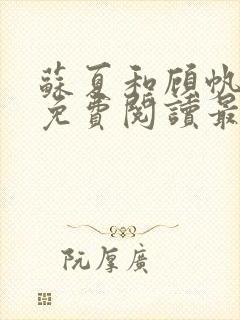 蘇夏和顾帆
免費閱讀最
阮厚廣